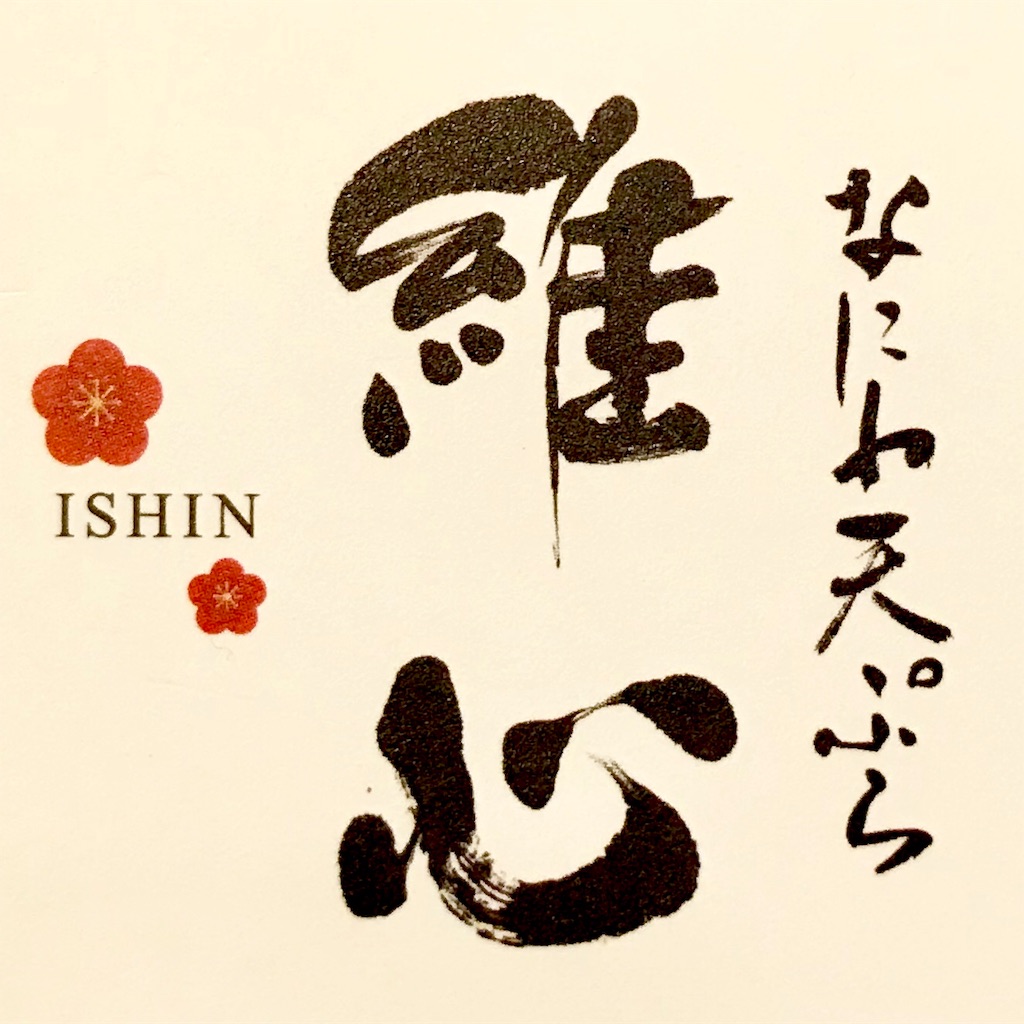 なにわ天ぷら
維心
ISHIN